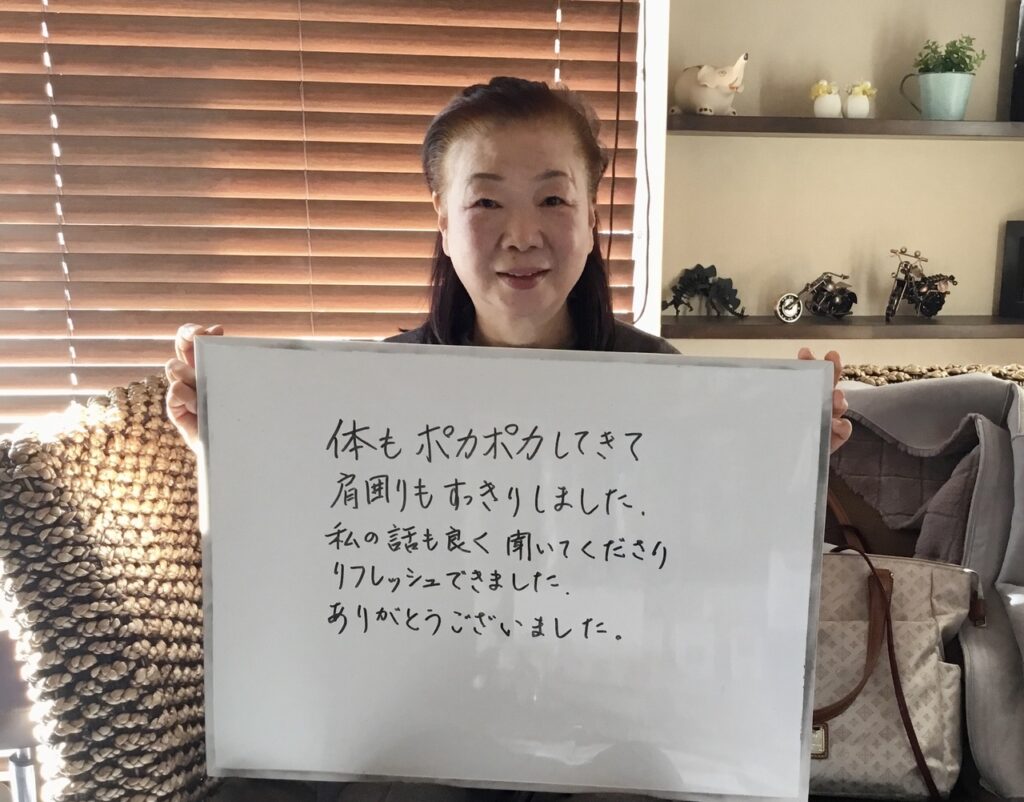 体もポカポカしてきて
肩囲りもすっきりしました.
私の話も良く聞いてくださり
リフレッシュできました.
ありがとうございました。